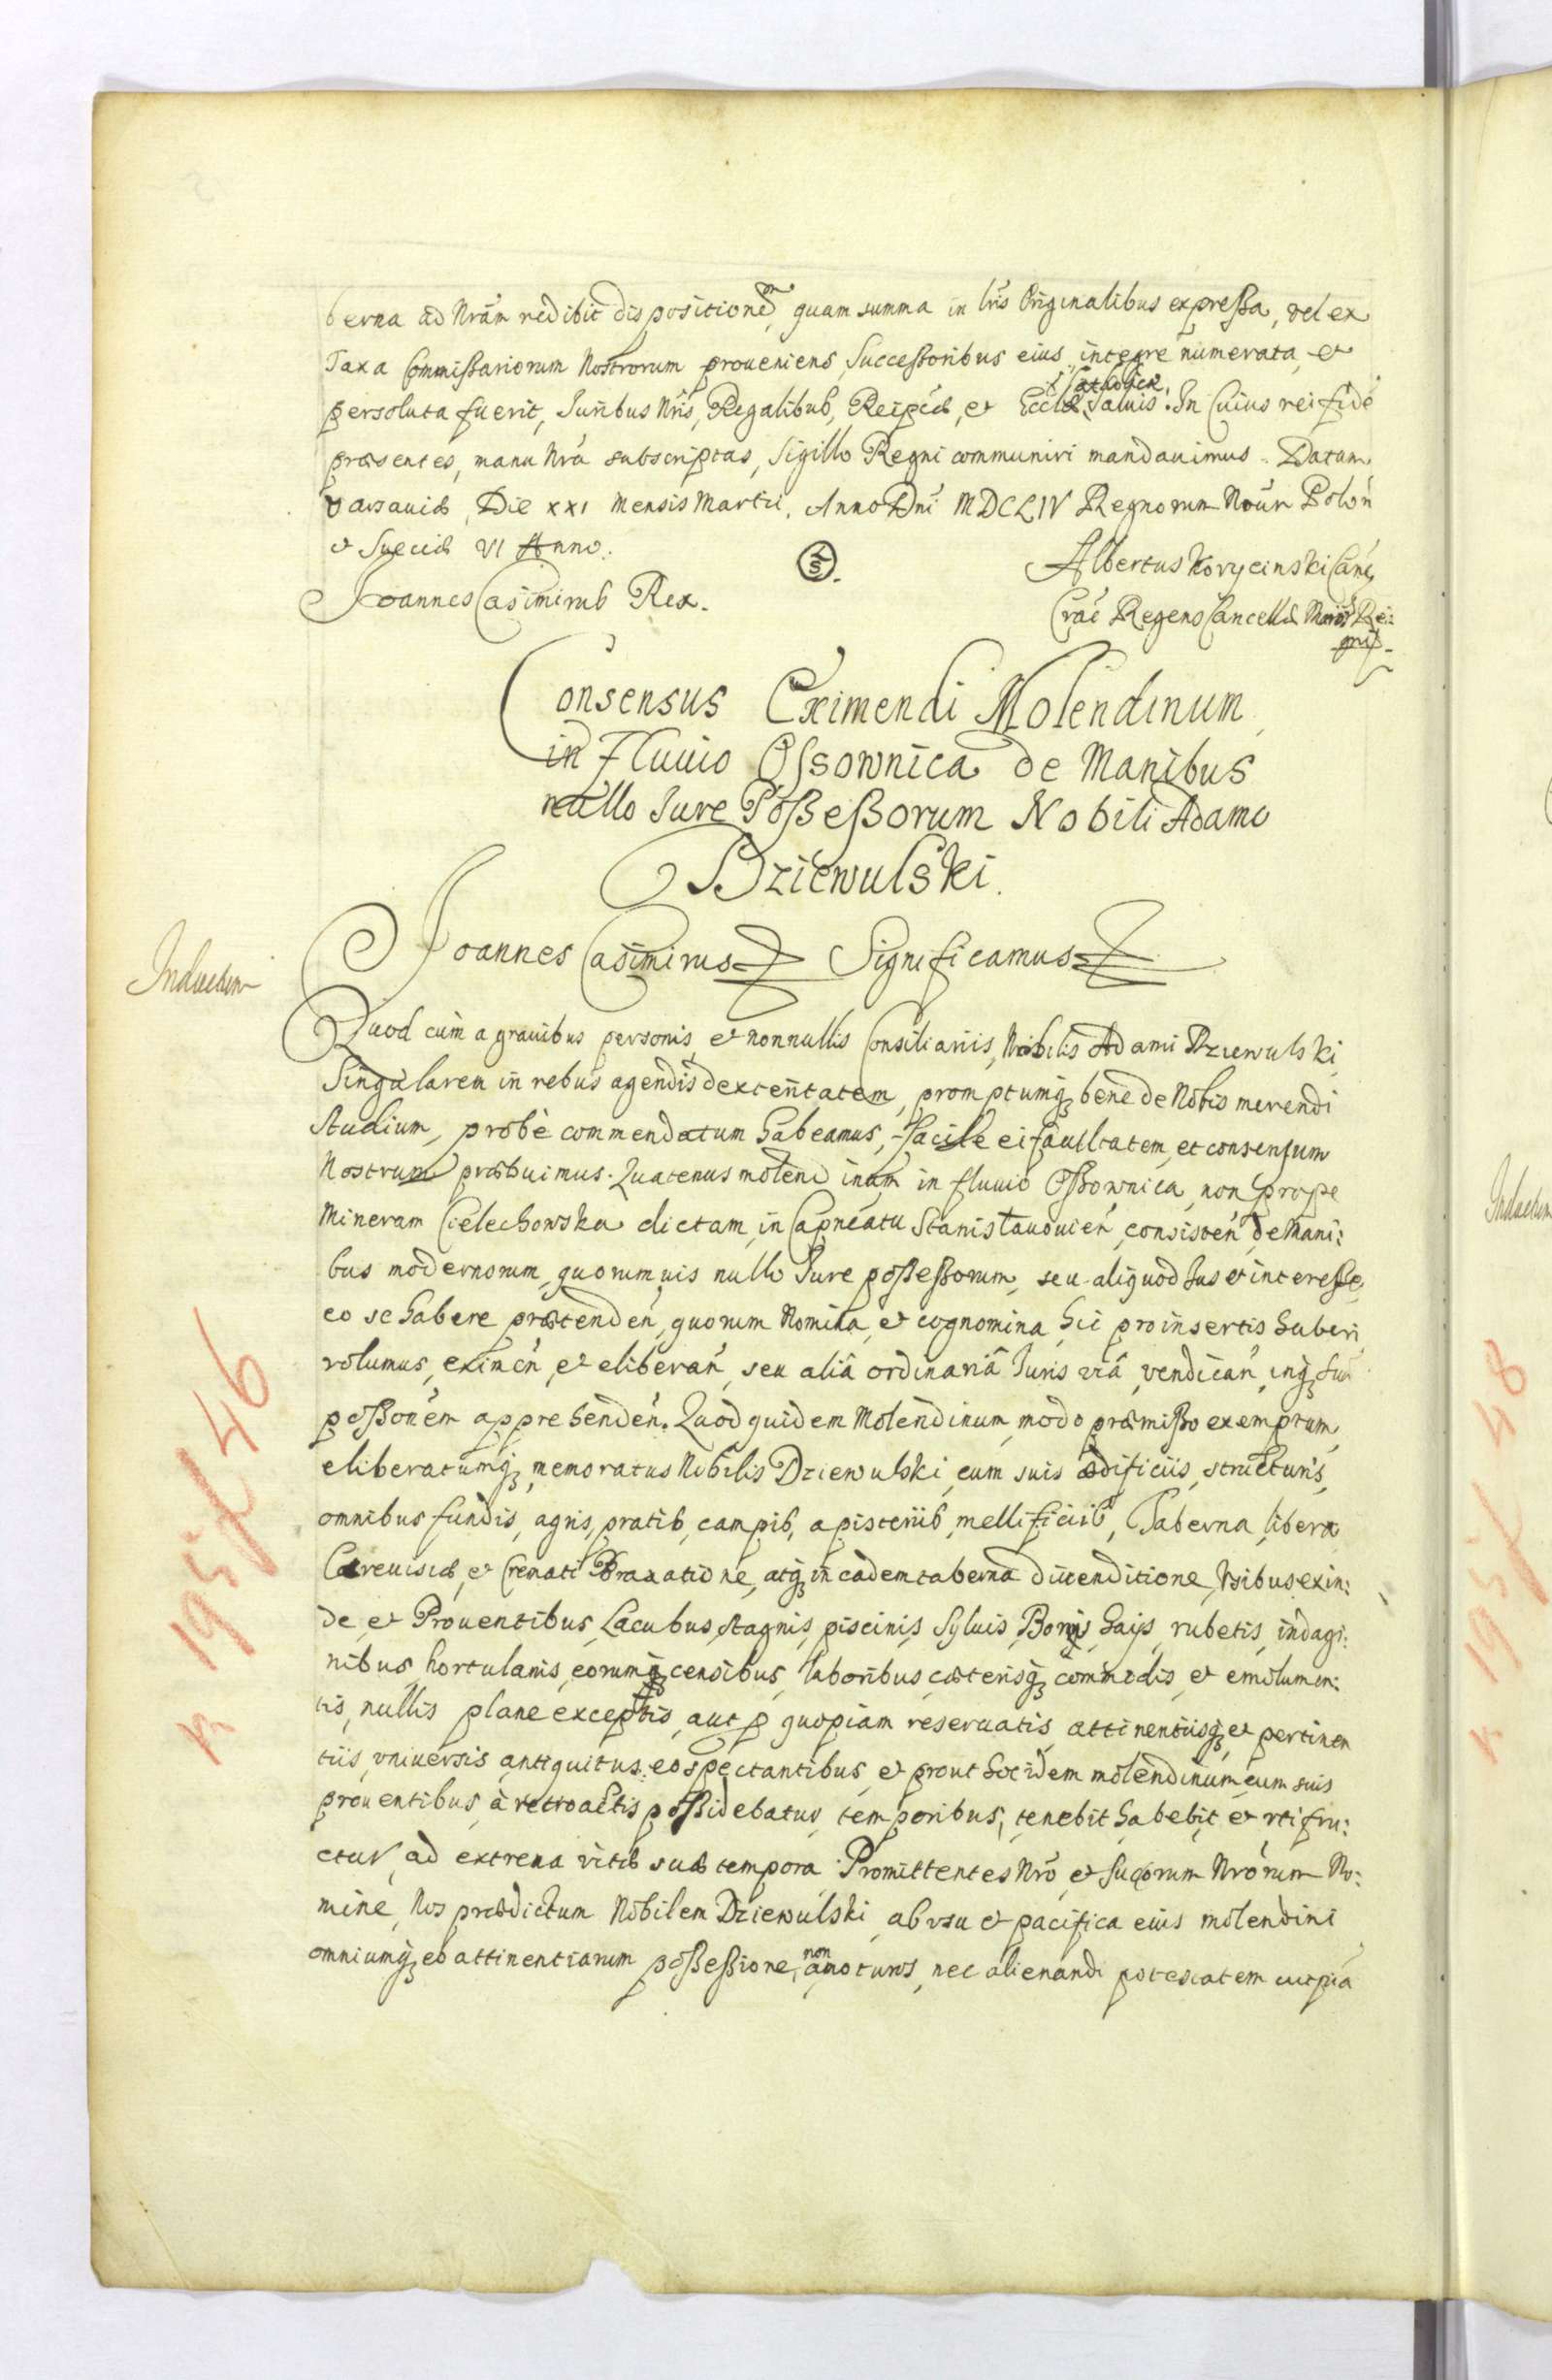 berna ad Nrãm redibit dispositionē, quam summa in lris Originalibus expreßa, vel ex
Taxa Commißariorum Nostrorum proueniens, Succeßoribus eius integre numerata, et
Catholicæ
persoluta fuerit, Iuribus Nris, Regalibus, Reipcæ, et Ecclæ Saluis. In Cuius rei fidē
præsentes, manu Nrã subscriptas, Sigillo Regni communiri mandauimus. Datum
Varsauiæ, Die XXI Mensis Martii, Anno Dni MDCLIV Regnorum Nrõr Polon
et Sueciæ VI Anno.
LS
Albertus Korycinski Canc,
Joannes Casimirus Rex.
Crac Regens Cancellæ Maioris Re:
gni
Consensus Eximendi Molendinum
in Fluuio Ossownica de Manibus
nullo Iure Poßeßorum Nobili Adamo
Dziewulski.
Joannes Casimirus Significamus
Inducturn
Quod cum a grauibus personis, et nonnullis Consiliariis, Nobilis Adami Dziewulski
Singularem in rebus agendis dexteritatem, promptumq bene de Nobis merendi
Studium, probè commendatum habeamus, facile ei facultatem, et consensum
Nostrum præbuimus. Quatenus molendinum in fluuio Oßownica, non prope
Mineram Cielechowska dictam, in Capneatu Stanisłauouien, consisten, de Mani:
bus modernorum, quorumuis nullo Iure poßeßorum, seu aliquod Ius et intereße,
eo se habere prætenden, quorum Nomina, et cognomina hic pro insertis haberi
volumus, eximen, et eliberan, seu aliâ ordinariâ Iuris viâ, vendican, inq suã
poßonem apprehenden. Quod quidem Molendinum, modo præmißo exemptum,
eliberatumq, memoratus Nobilis Dziewulski, cum suis ædificiis, structuris,
omnibus fundis, agris, pratis, campis, apisteriis, mellificiis, Taberna, libera
Cereuisiæ, et Cremati Braxatione, atq in eadem taberna diuenditione, Vsibus exin:
de, et Prouentibus, Lacubus, stagnis, piscinis, Syluis, Boris, Gaijs, rubetis, indagi:
nibus, hortulanis, eorumq censibus, laboribus, cæterisq commodis, et emolumen:
tis, nullis plane exceptis, aut p quopiam reseruatis, attinentiisq, et pertinen
tiis, vniuersis antiquitus eo spectantibus, et prout hoc idem molendinum, cum suis
prouentibus, à retroactis poßidebatur, temporibus, tenebit, habebit, et vtifru:
etur, ad extrema vitæ suæ tempora. Promittentes Nro, et Succorum Nrorum No:
mine, Nos prædictum Nobilem Dziewulski, ab vsu et pacifica eius molendini
non
omniumq eo attinentiarum poßeßione, amoturos, nec alienandi potestatem cuipiã